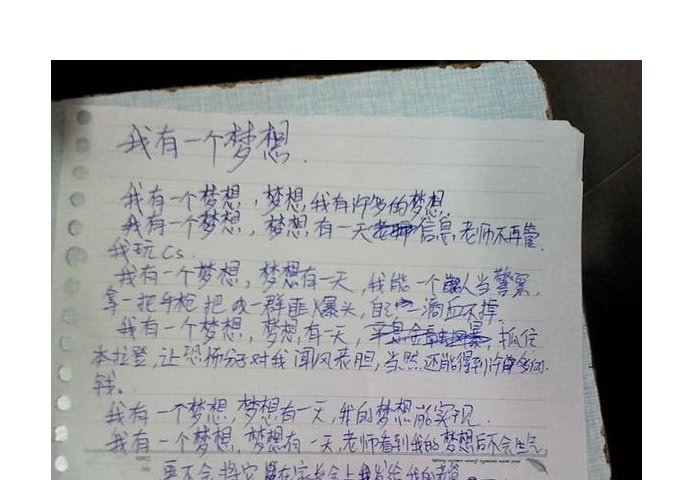 我有一个梦想.
我有一个梦想,梦想,我有许多的梦想.
我有一个梦想,梦想,有一天信息老师不再管
我玩Cs.
我有一个梦想,梦想有一天,我能一个人当警察,
拿一把手枪把一群匪爆头,自己一滴血不掉.
我有一个梦想,梦想,有一天,抓住
本拉登,让恐怖分子对我闻风丧胆,当然,还能得到许多的
钱.
我有一个梦想,梦想有一天,我的梦想能实现.
我有一个梦想,梦想有一天,老师看到我的梦想后不会生气
更不会将它在家长会上我的